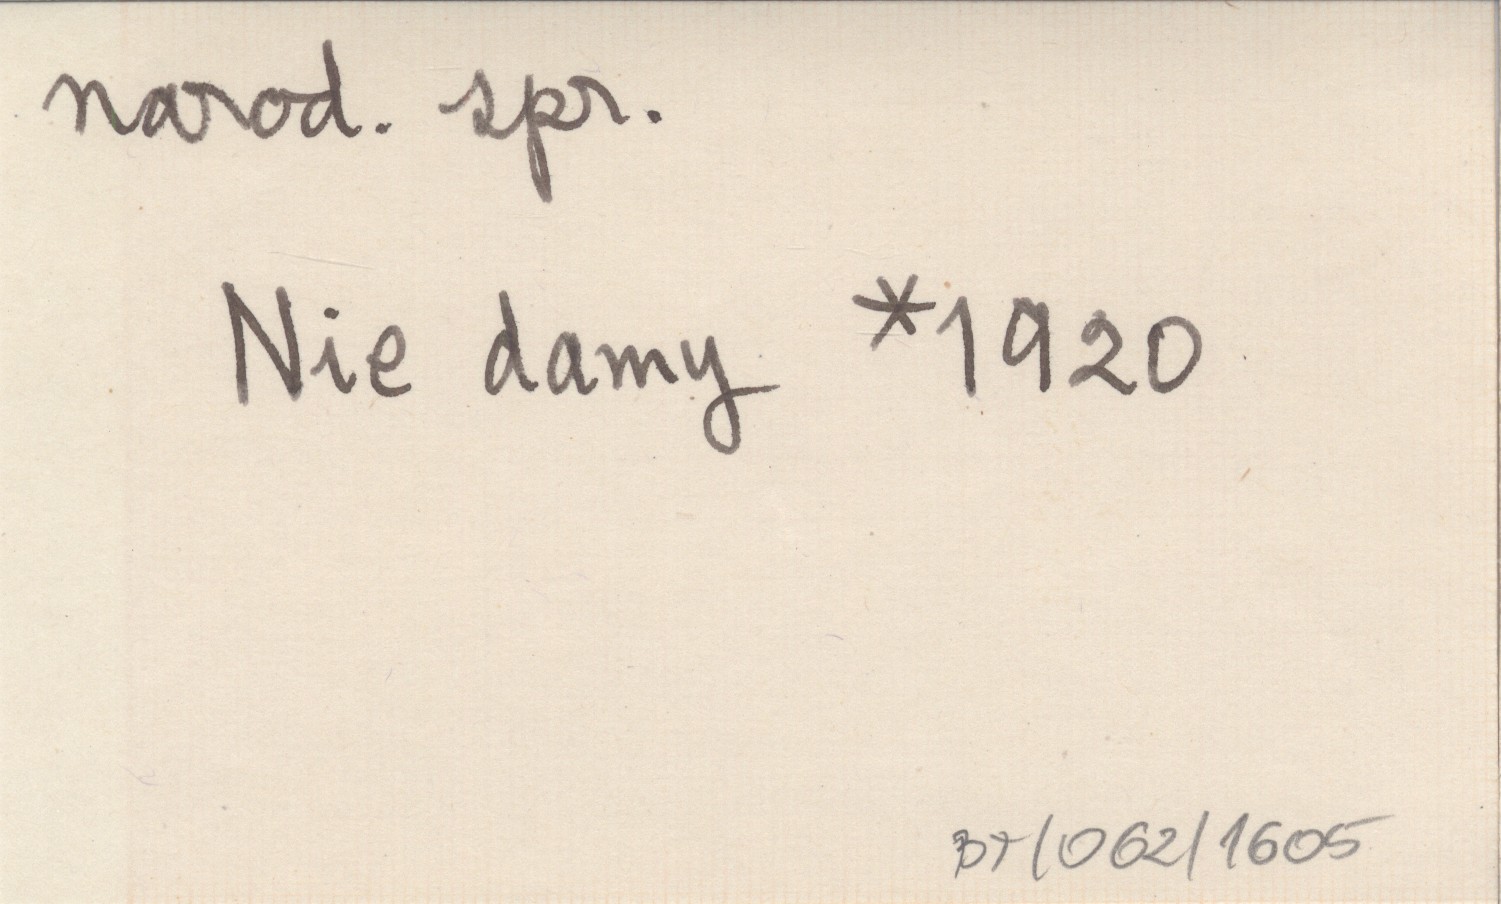 narod. spr.
Nie damy *1920
BT/062/1605